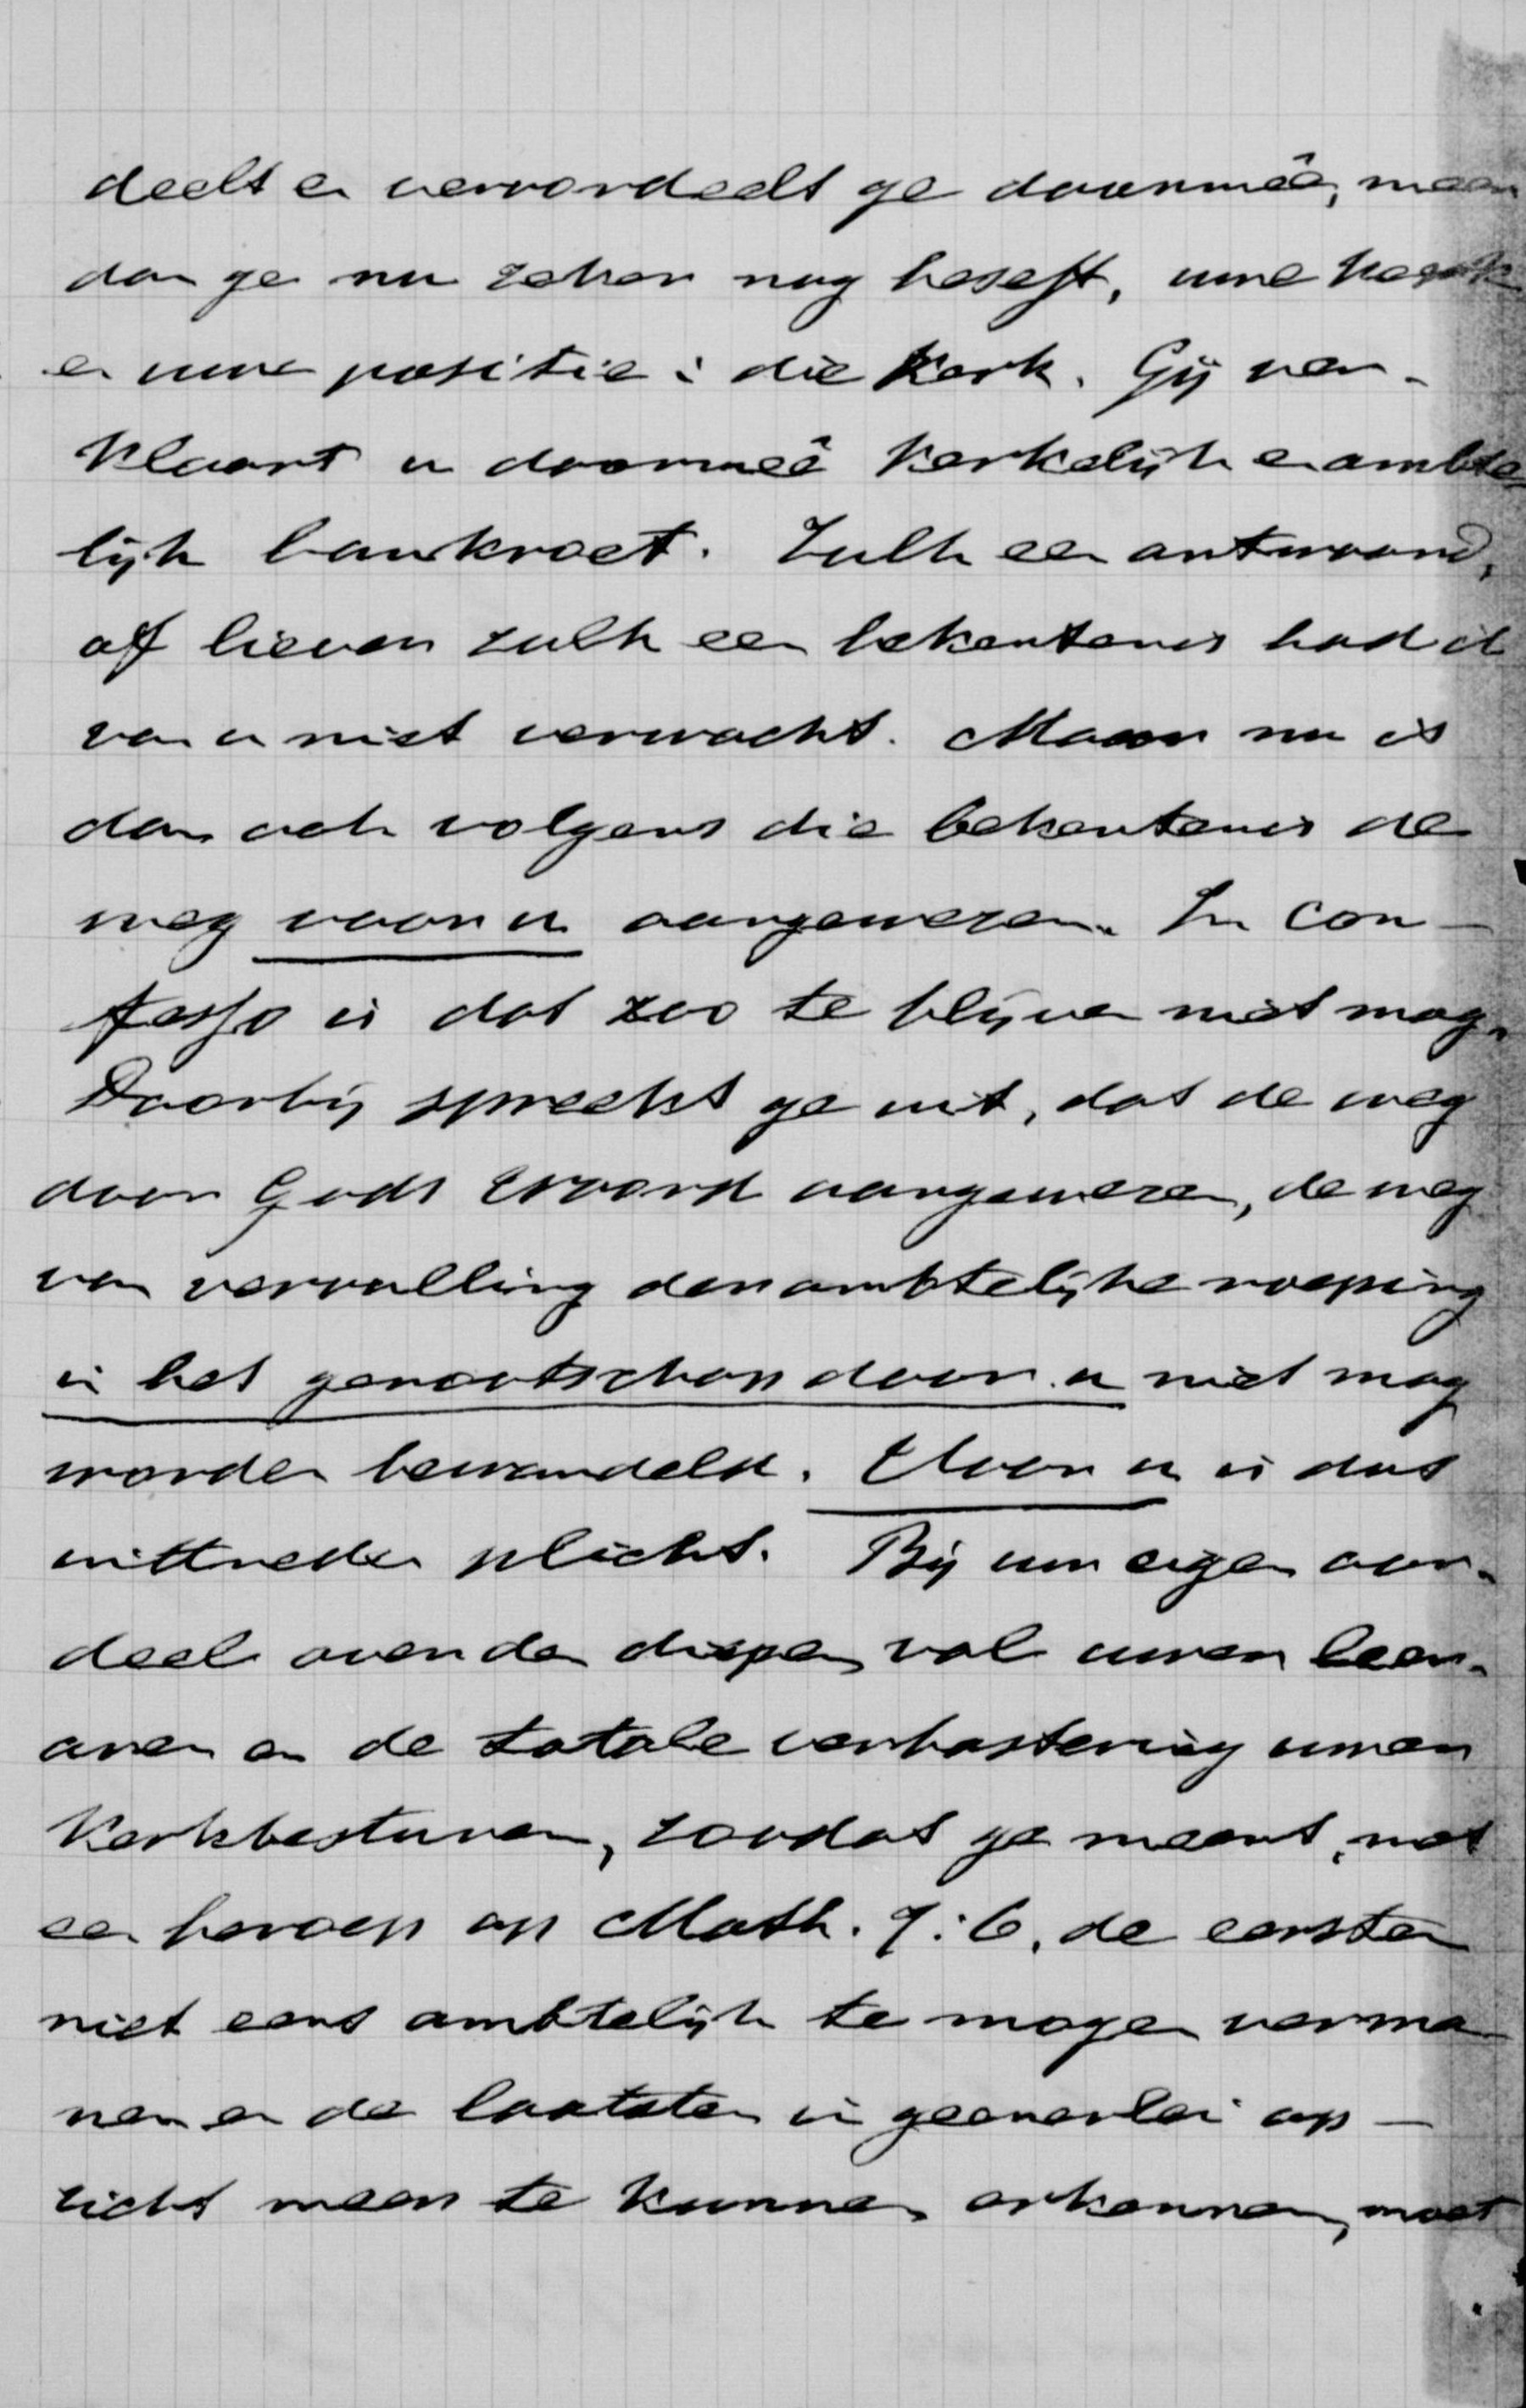 deelt en veroordeelt ge daarmeê, meer
dan ge nu zeker nog beseft, uwe kerk
en uwe positie in die kerk. Gij ver-
klaart u daarmeê kerkelijk en ambte-
lijk bankroet. Zulk een antwoord,
of liever zulk een bekentenis had ik
van u niet verwacht. Maar nu is
dan ook volgens die bekentenis de
weg voor u aangewezen. In con-
fesso is dat zoo te blijven niet mag.
Daarbij spreekt ge uit, dat de weg
door Gods Woord aangewezen, de weg
van vervulling der ambtelijke roeping
in het genootschap door u niet mag
worden bewandeld. Voor u is dus
uittreden plicht. Bij uw eigen oor-
deel over den diepen val uwer leer-
aren en de totale verbastering uwer
kerkbesturen, zoodat ge meent, met
een beroep op Math. 7:6, de eersten
niet eens ambtelijk te mogen verma-
nen en de laatsten in geenerlei op-
zicht meer te kunnen erkennen, moet